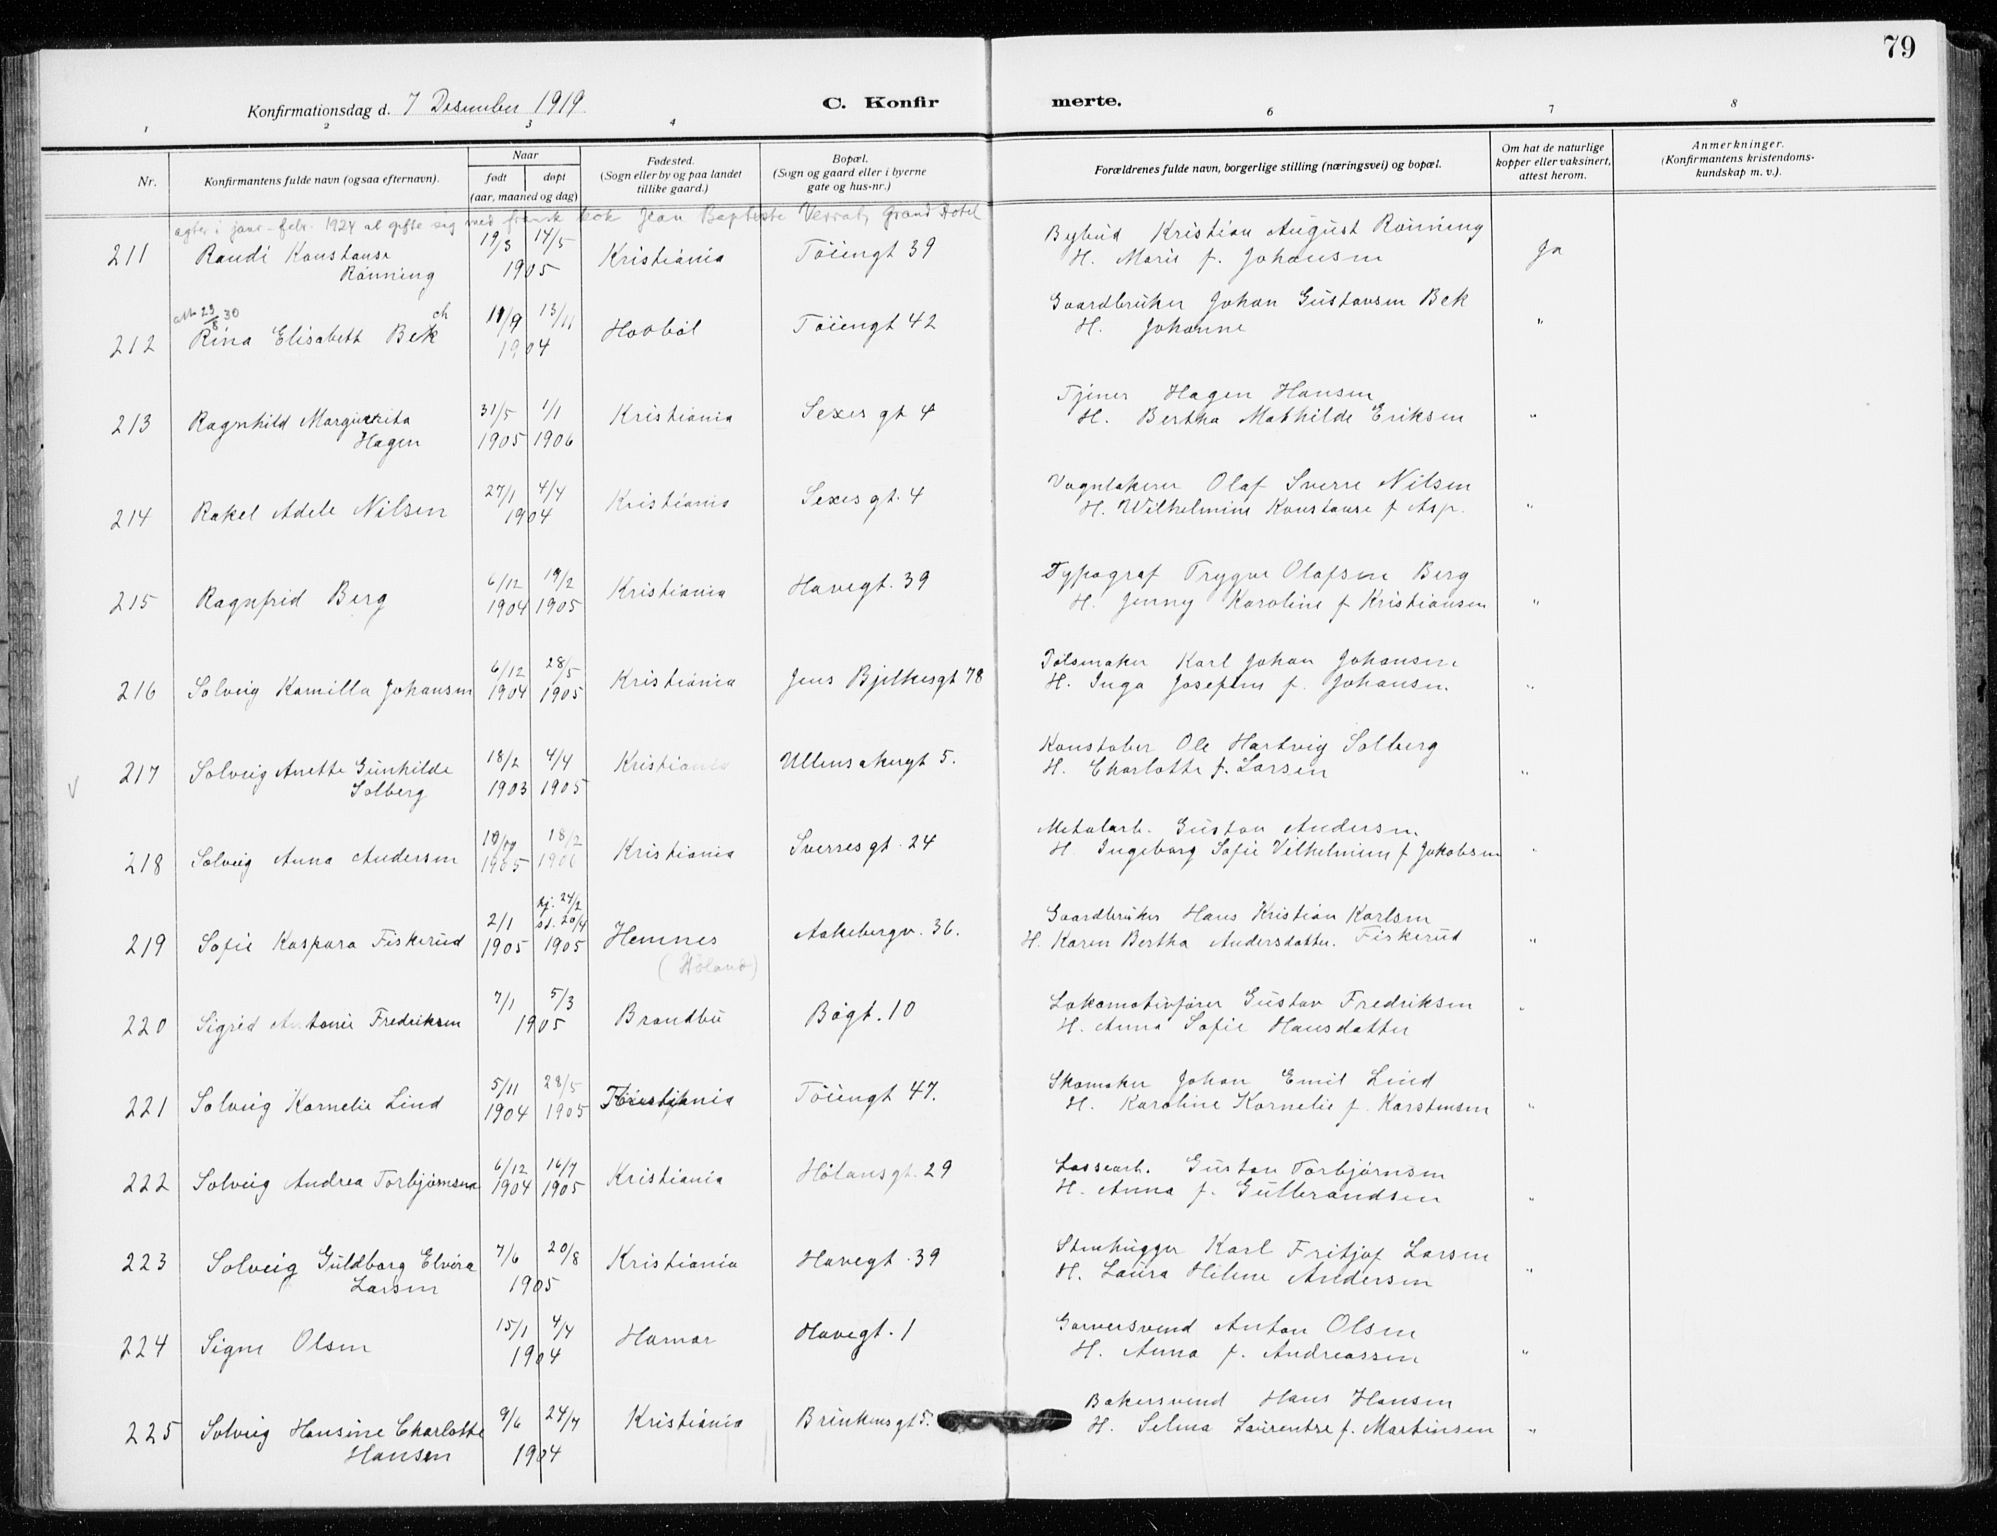 79
Konfirmationsdag d. 7 Desember 1919.
C. Konfirmerte.
1 2 3 4 6 7 8
Nr.
Konfirmantens fulde navn (ogsaa efternavn).
Naar
født døpt
(aar, maaned og dag)
Fødested.
(Sogn eller by og paa landet
tillike gaard.)
Bopæl.
(Sogn og gaard eller i byerne
gate og hus-nr.)
Forældrenes fulde navn, borgerlige stilling (næringsvei) og bopæl.
Om hat de naturlige
kopper eller vaksinert,
attest herom.
Anmerkninger.
(Konfirmantens kristendoms-
kundskap m. v.).
agter i jan-febr. 1924 at gifte sig med fransk kok Jean Baptiste Grand Hotel
211 Randi Konstanse 19/3 14/5 Kristiania Töiengt 39 Bybud Kristian August Rönning Ja
Rönning 1905 H. Marie f. Johansen
att. 23/8 30 ch
212 Rina Elisabeth Bek 11/9 13/11 Hobböl Töiengt 42 Gaardbruker Johan Gustavsen Bek "
1904 H. Johanne
213 Ragnhild Margueritta 31/5 1/1 Kristiania Sexes gt 4 Tjener Hagen Hansen "
Hagen 1905 1906 H. Bertha Mathilde Eriksen
214 Rakel Adele Nilsen 27/1 4/4 Kristiania Sexes gt. 4 Vognlakerer Olaf Sverre Nilsen "
1904 H. Wilhelmine Konstanse f Asp.
215 Ragnfrid Berg 6/12 19/2 Kristiania Havegt. 39 Typograf Trygve Olafsen Berg "
1904 1905 H. Jenny Karoline f Kristiansen
216 Solveig Kamilla Johansen 6/12 28/5 Kristiania Jens Bjelkesgt 78 Pölsmaker Karl Johan Johansen "
1904 1905 H. Inga Josefine f. Johansen.
217 Solveig Anette Gunhilde 18/2 4/4 Kristiania Ullensakergt 5. Konstabel Ole Hartvig Solberg "
Solberg 1903 1905 H. Charlotte f. Larsen
218 Solveig Anna Andersen 18/2 Kristiania Sverresgt. 24 Metalarb. Gustav Andersen. "
1905 1906 H. Ingeborg Sofie Vilhelmine f Jakobsen
219 Sofie Kaspara Fiskerud 2/1 hj. 24/2 st. 20/4 Hemnes Aakebergv. 36. Gaardbruker Hans Kristian Karlsen "
1905 1905 (Höland) H. Karen Bertha Andersdatter. Fiskerud
220 Sigrid Antonie Fredriksen 7/1 5/3 Brandbu Bögt. 10 Lokomotivförer Gustav Fredriksen "
1905 H. Anna Sofie Hansdatter
221 Solveig Kornelie Lind 5/11 28/5 Kristiania Töiengt 47. Skomaker Johan Emil Lind "
1904 1905 H. Karoline Kornelie f. Karstensen
222 Solveig Andrea Torbjörnsen 6/12 16/7 Kristiania Hölansgt. 29 Lossearb. Gustav Torbjörnsen "
1904 1905 H. Anna f. Gulbrandsen
223 Solveig Guldborg Elvira 7/6 20/8 Kristiania Havegt. 39 Stenhugger Karl Fritjof Larsen "
Larsen 1905 H. Laura Helene Andersen
224 Signe Olsen 15/1 4/4 Hamar Havegt. 1 Garversvend Anton Olsen "
1904 H. Anna f. Andreassen
225 Solveig Hansine Charlotte 9/6 24/7 Kristiania Brinkensgt 5. Bakersvend Hans Hansen "
Hansen 1904 H. Selma Laurentse f. Martinsen